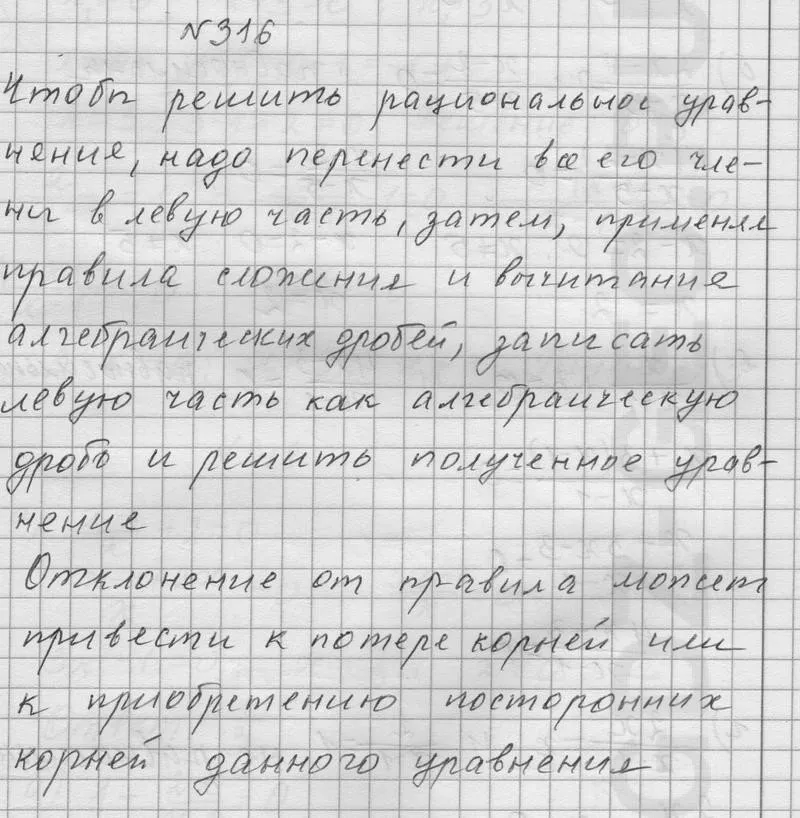 №316
Чтобы решить рациональное урав-
нение, надо перенести все его чле-
ны в левую часть, затем, применяя
правила сложения и вычитания
алгебраических дробей, записать
левую часть как алгебраическую
дробь и решить полученное урав-
нение
Отклонение от правила может
привести к потере корней или
к приобретению посторонних
корней данного уравнения